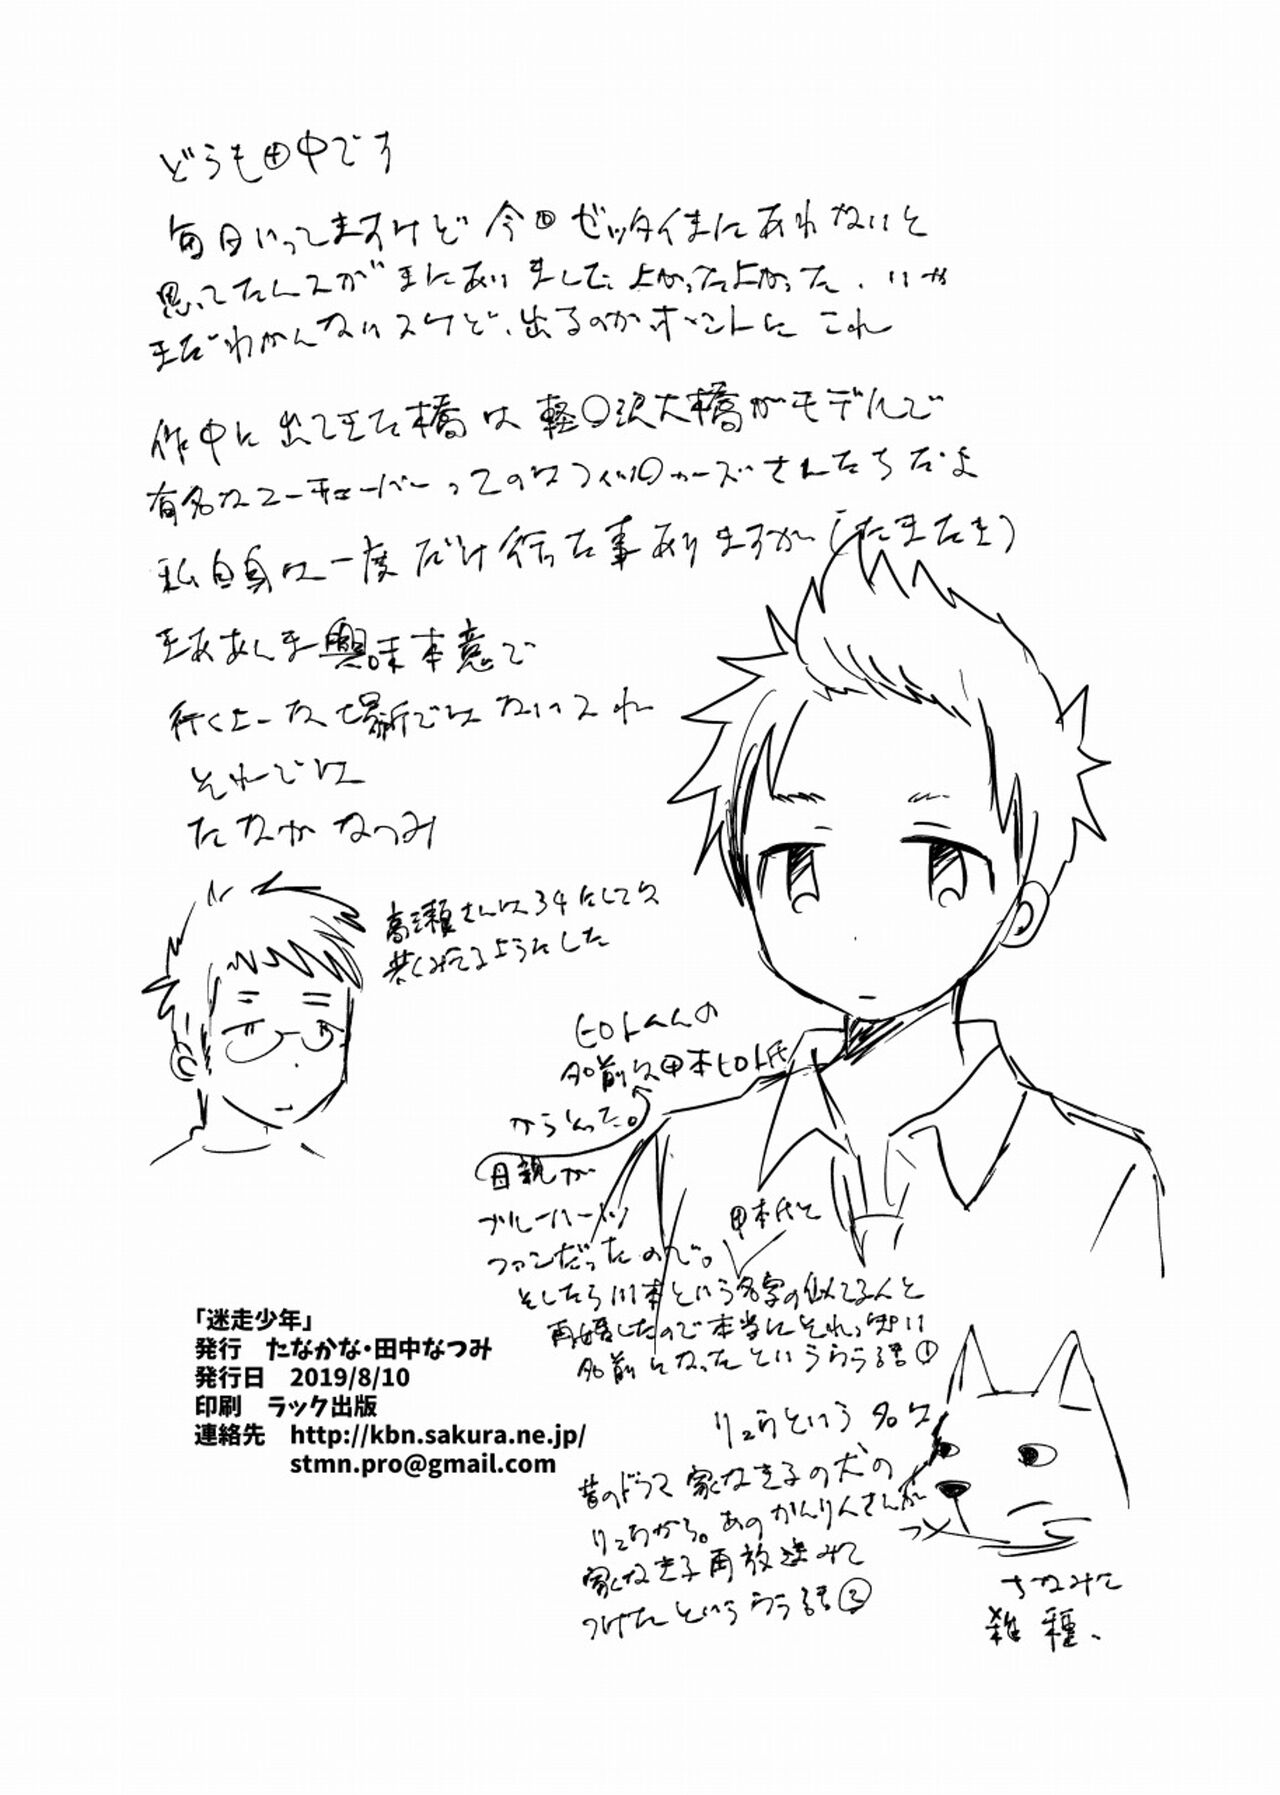 どうも田中です
毎回いってますけど今回ゼッタイまにあわないと
思ってたんスがまにあいました よかったよかった、いや
まだわかんないスけど、出るのかホントに これ
作中に出てきた橋は軽〇沢大橋がモデルで
有名なユーチューバーってのは〇ッカーズさんたちだよ
私自身は一度だけ行った事ありますが(たまたま)
まああんま興味本意で
行くよーな場所ではないスね
それでは
たなかなつみ
高瀬さんは34にしては
若くみえるようにした
ヒロトくんの
名前は甲本ヒロト氏
からとった。
母親が
ブルーハーツ
ファンだったので。
甲本氏と
そしたら川本という名字の似てる人と
再婚したので本当にそれっぽい
名前になったというウラ話①
リュウという名は
昔のドラマ家なき子の犬の
リュウから。あのかんりんさんが
家なき子再放送みて
つけたというウラ話②
ちなみに
雑種、
「迷走少年」
発行 たなかな・田中なつみ
発行日 2019/8/10
印刷 ラック出版
連絡先 http://kbn.sakura.ne.jp/
stmn.pro@gmail.com